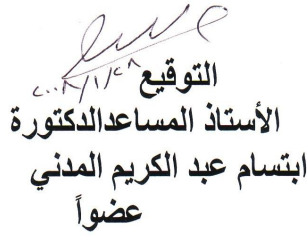 التوقيع
٢٠٠٨/١/٢٨
الأستاذ المساعدالدكتورة
ابتسام عبد الكريم المدني
عضواً